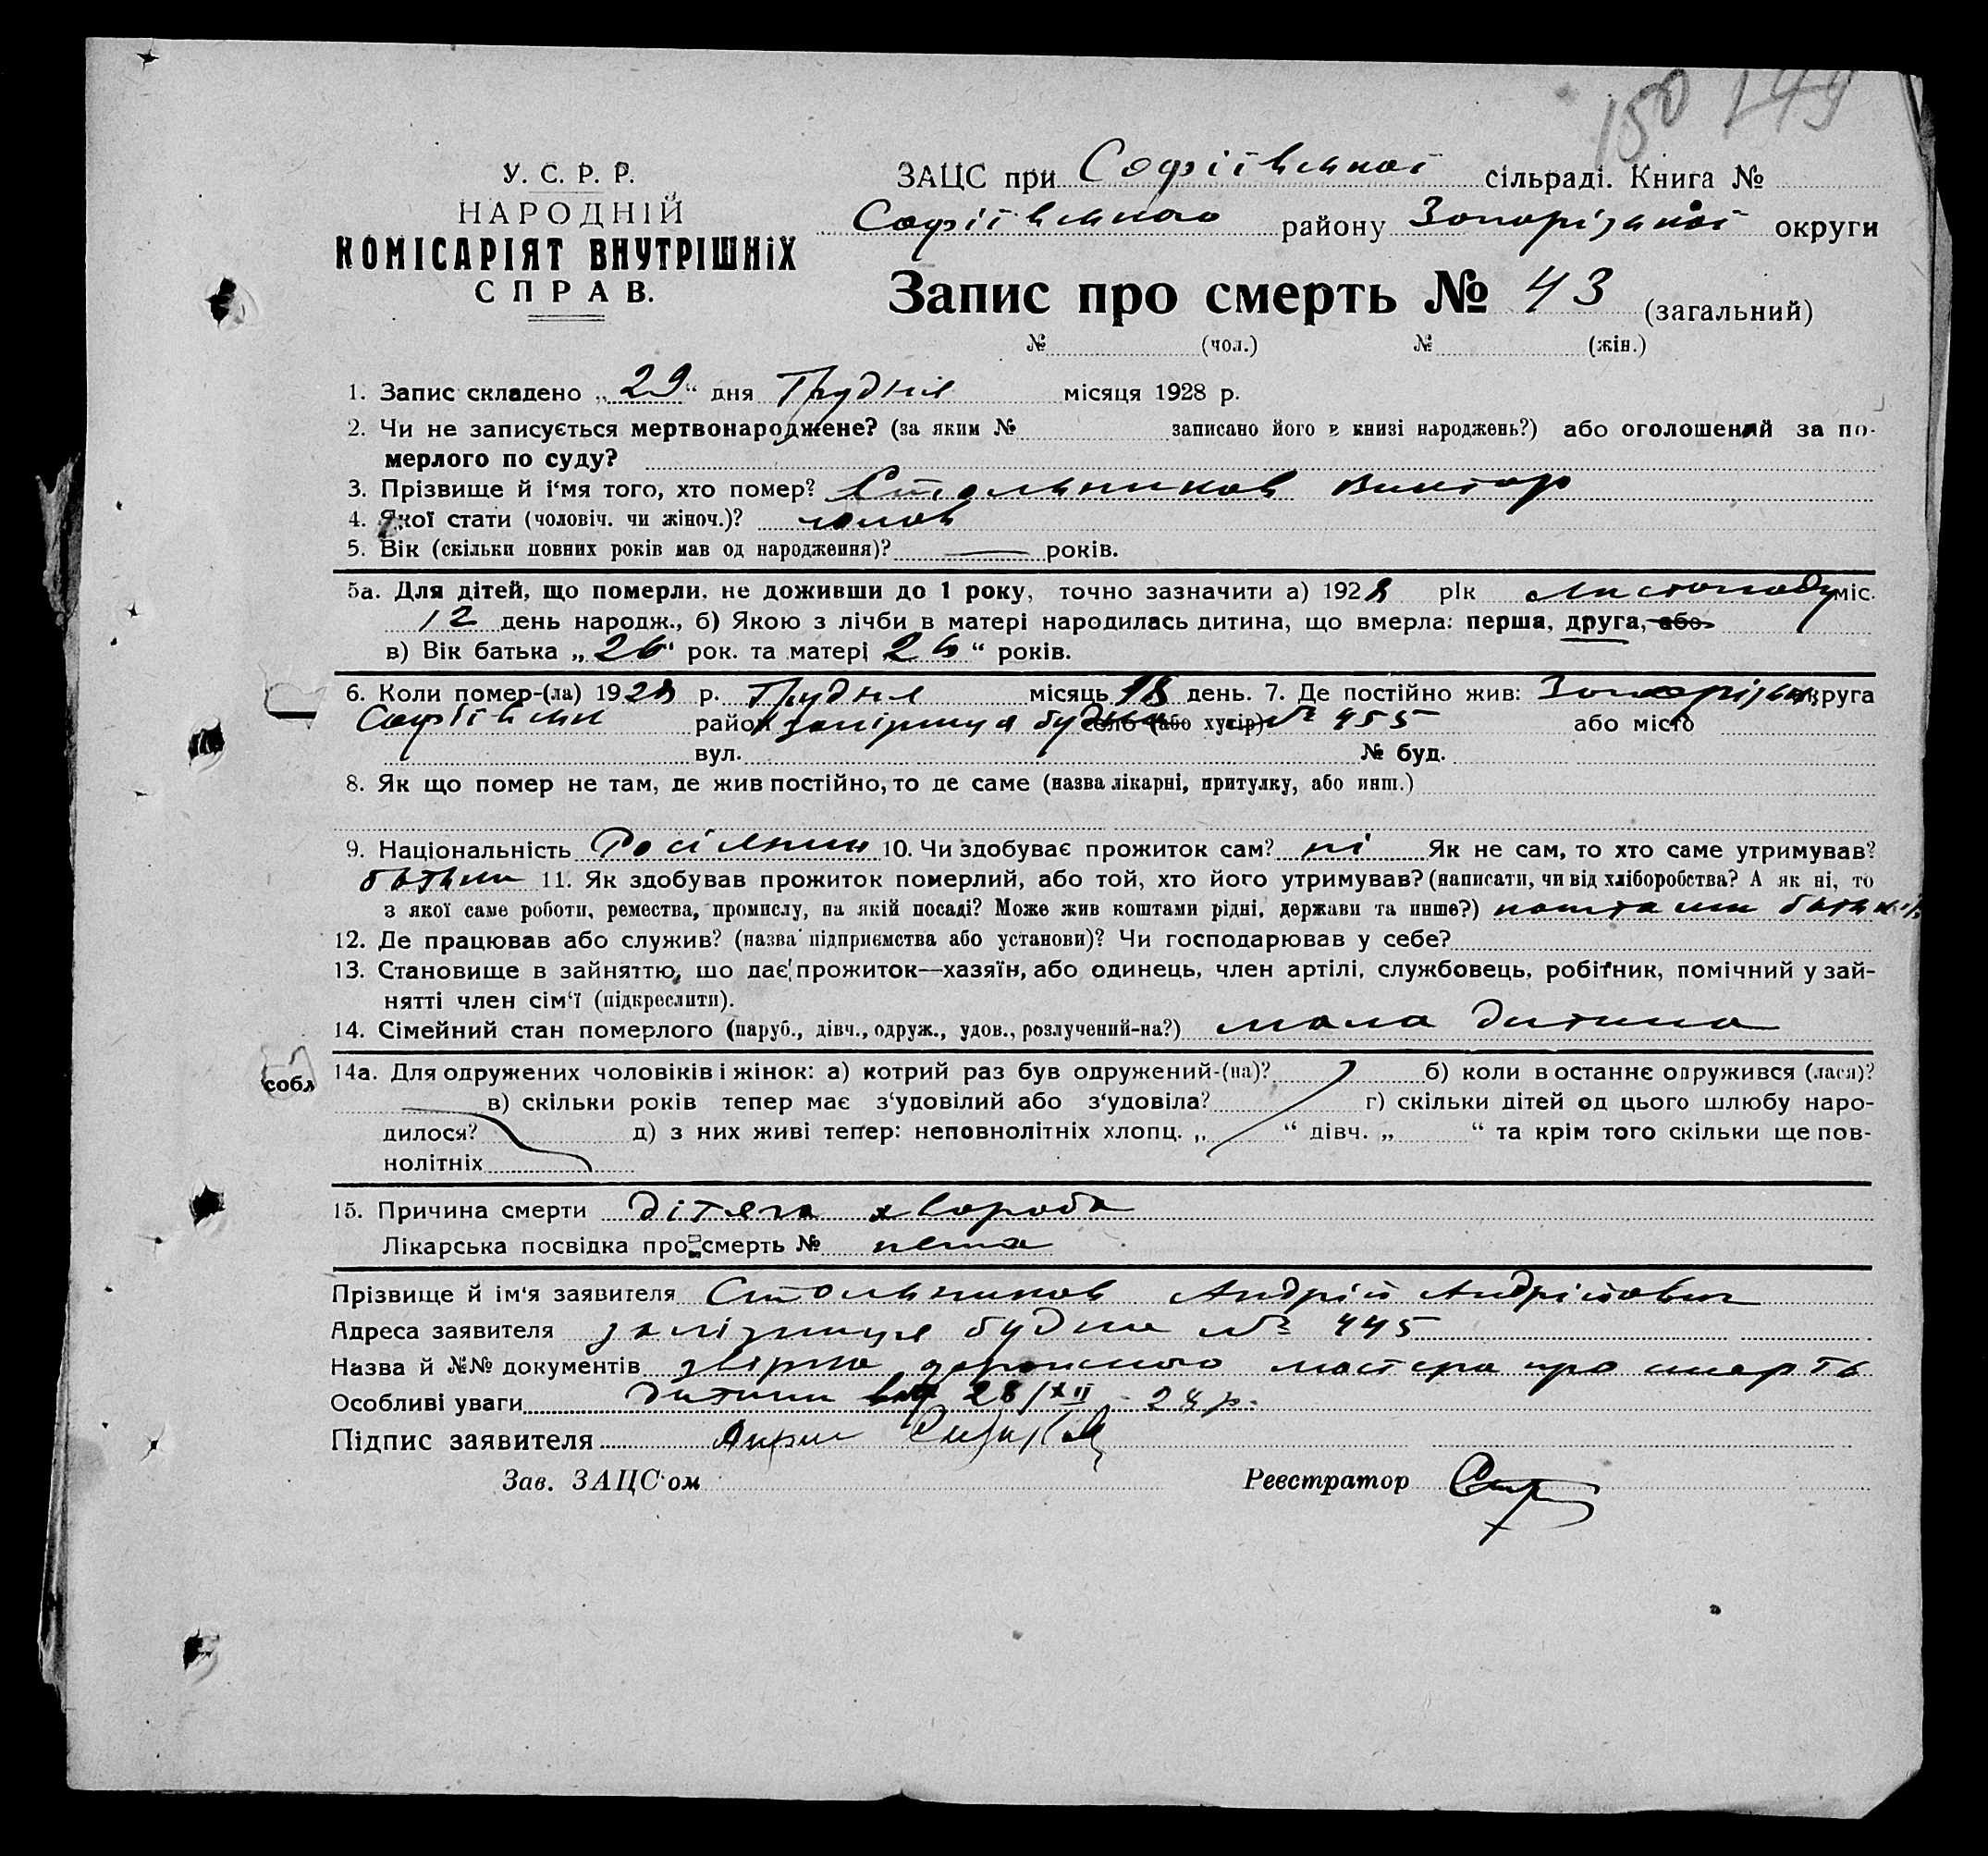 150 149
У. С. Р. Р.
НАРОДНІЙ
КОМІСАРІЯТ ВНУТРІШНІХ
СПРАВ.
ЗАЦС при Софіївської сільраді. Книга №
Софіївського району Запорізької округи
Запис про смерть № 43 (загальний)
№ (чол.) № (жін.)
1. Запис складено „29“ дня Грудня місяця 1928 р.
2. Чи не записується мертвонароджене? (за яким № записано його в книзі народжень?) або оголошений за по-
мерлого по суду?
3. Прізвище й і‘мя того, хто помер? Стольников Виктор
4. Якої стати (чоловіч. чи жіноч.)? чолов
5. Вік (скільки повних років мав од народження)? — років.
5а. Для дітей, що померли, не доживши до 1 року, точно зазначити а) 1928 рік Листопаду міс.
12 день народж., б) Якою з лічби в матері народилась дитина, що вмерла: перша, друга, або
в) Вік батька „26“ рок. та матері „26“ років.
6. Коли помер-(ла) 1928 р. Грудня місяць 18 день. 7. Де постійно жив: Запорізька округа
Софіївськ район залізниця будка село (або хутір) № 455 або місто
вул. № буд.
8. Як що помер не там, де жив постійно, то де саме (назва лікарні, притулку, або инш.)
9. Національність Росіянин 10. Чи здобуває прожиток сам? ні Як не сам, то хто саме утримував?
батьки 11. Як здобував прожиток померлий, або той, хто його утримував? (написати, чи від хліборобства? А як ні, то
з якої саме роботи, ремества, промислу, на якій посаді? Може жив коштами рідні, держави та инше?) коштами батьків
12. Де працював або служив? (назва підприємства або установи)? Чи господарював у себе?
13. Становище в зайняттю, що дає прожиток—хазяїн, або одинець, член артілі, службовець, робітник, помічний у зай-
нятті член сім‘ї (підкреслити).
14. Сімейний стан померлого (паруб., дівч., одруж., удов., розлучений-на?) мала дитина
собл
14а. Для одружених чоловіків і жінок: а) котрий раз був одружений-(на)? б) коли в останнє одружився (лася)?
в) скільки років тепер має з‘удовілий або з‘удовіла? г) скільки дітей од цього шлюбу наро-
дилося? д) з них живі тепер: неповнолітніх хлопц. „ “ дівч. „ “ та крім того скільки ще пов-
нолітніх
15. Причина смерти дітяча хвороба
Лікарська посвідка про смерть № нема
Прізвище й ім‘я заявителя Стольников Андрій Андрійович
Адреса заявителя залізниця будка № 445
Назва й №№ документів дорожного мастера про смерть
Особливі уваги дитини від 28/XII - 28 р.
Підпис заявителя
Зав. ЗАЦС‘ом Реєстратор